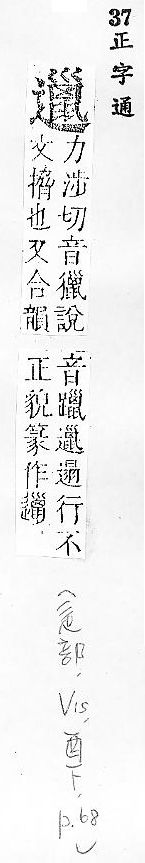 37正字通
邋
力涉切音獵說
文搚也又合韻
音躐邋遢行不
正貌篆作𨘸
(辵部, Vis, 酉下, p.68)